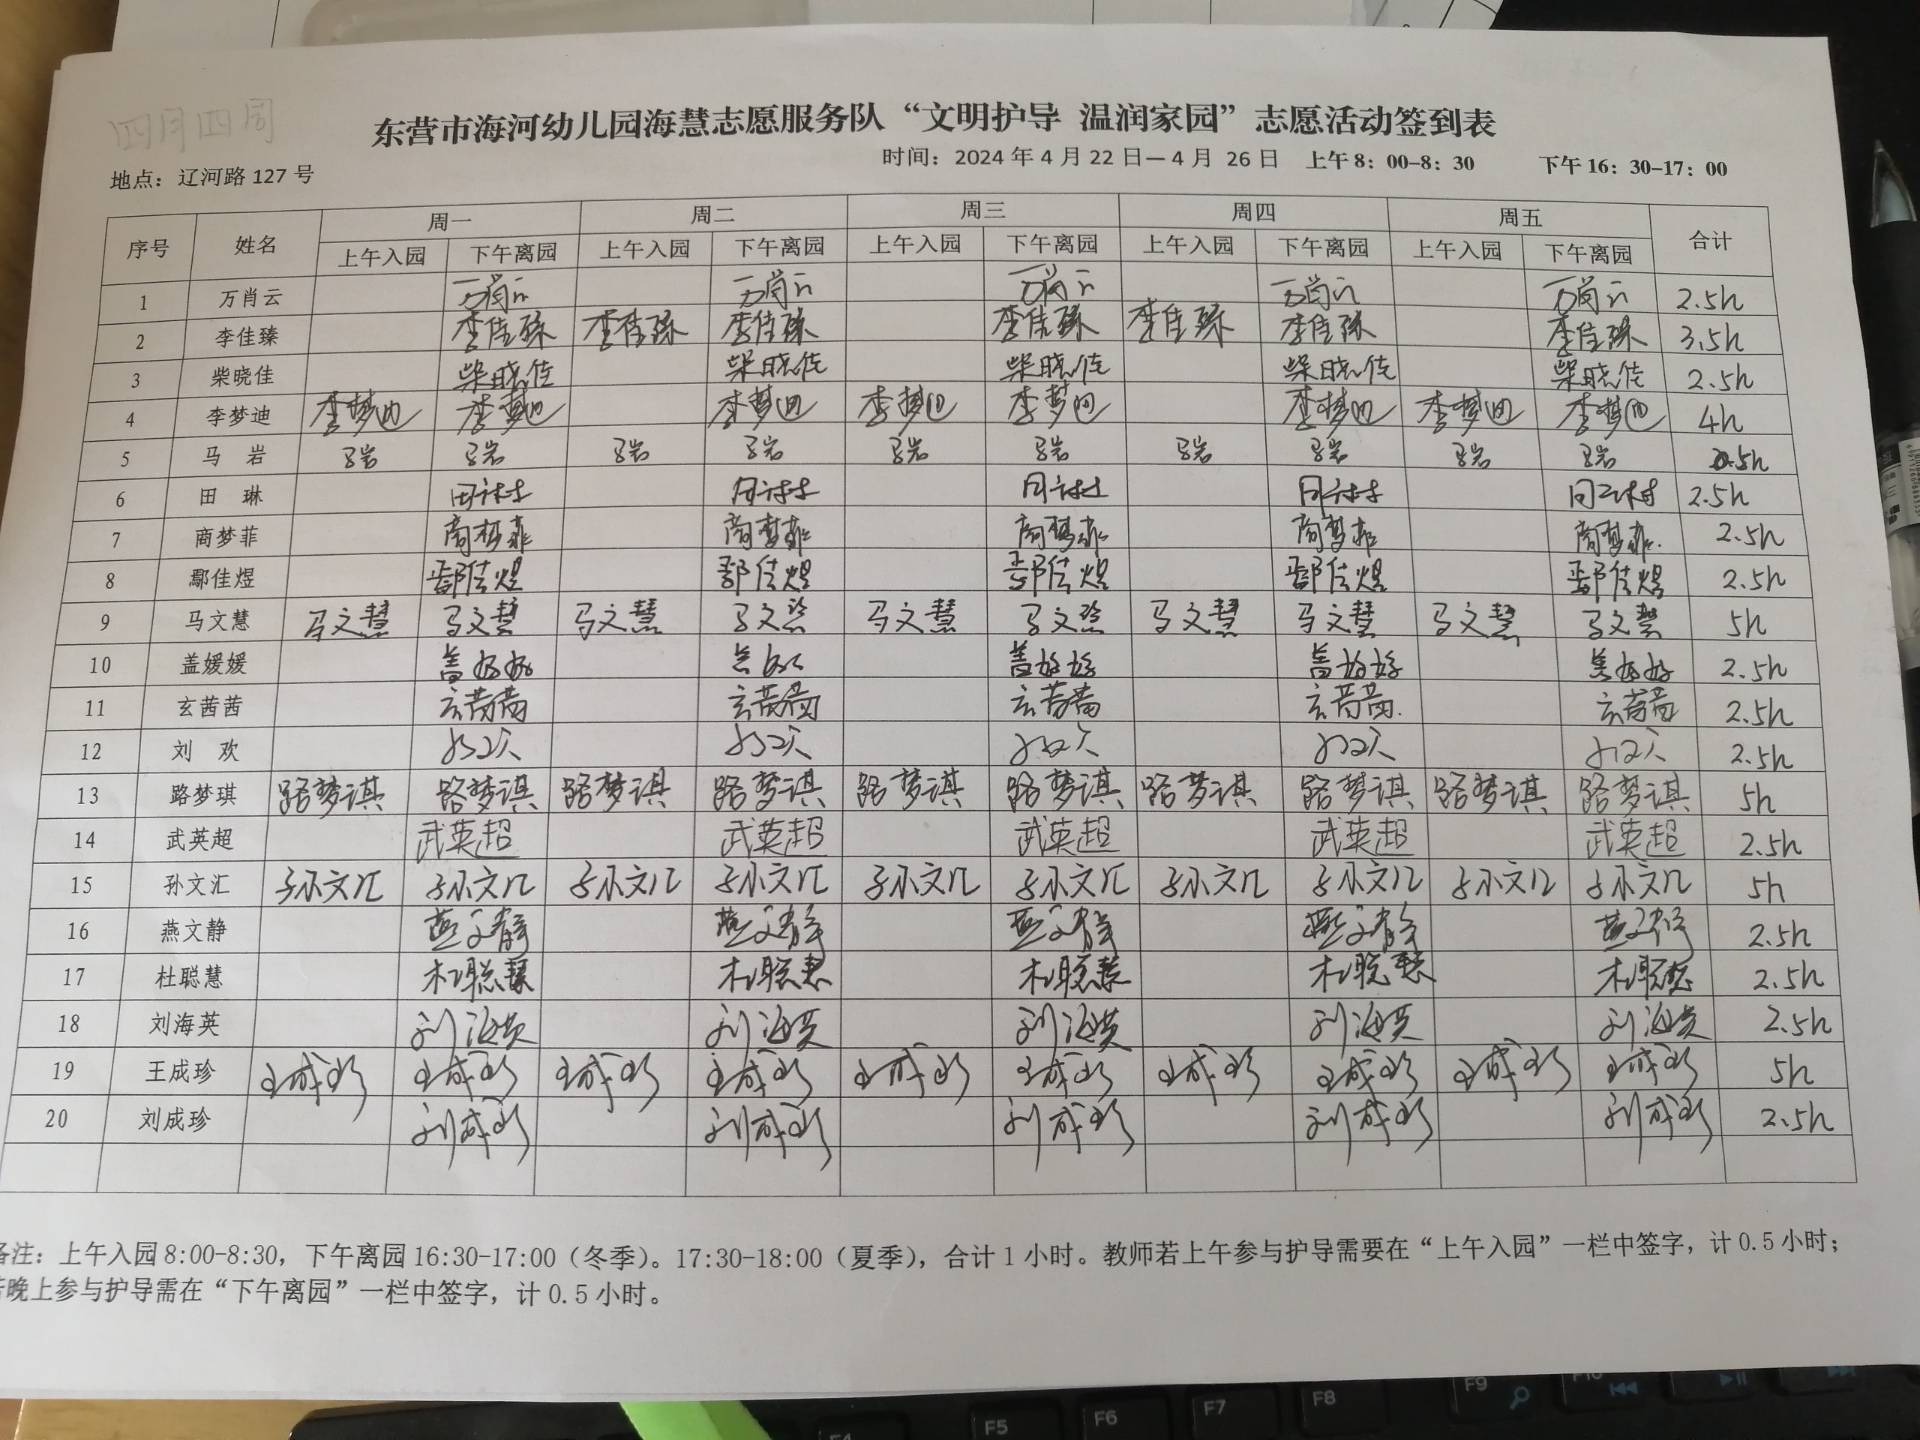 四月四周
东营市海河幼儿园海慧志愿服务队“文明护导 温润家园”志愿活动签到表
地点：辽河路127号 时间：2024年4月22日—4月 26日 上午8：00-8：30 下午16：30-17：00
序号 姓名 周一 周二 周三 周四 周五 合计
上午入园 下午离园 上午入园 下午离园 上午入园 下午离园 上午入园 下午离园 上午入园 下午离园
1 万肖云 万肖云 万肖云 万肖云 万肖云 万肖云 2.5h
2 李佳臻 李佳臻 李佳臻 李佳臻 李佳臻 李佳臻 李佳臻 李佳臻 3.5h
3 柴晓佳 柴晓佳 柴晓佳 柴晓佳 柴晓佳 柴晓佳 2.5h
4 李梦迪 李梦迪 李梦迪 李梦迪 李梦迪 李梦迪 李梦迪 李梦迪 李梦迪 4h
5 马 岩 马岩 马岩 马岩 马岩 马岩 马岩 马岩 马岩 马岩 马岩
6 田 琳 田琳 田琳 田琳 田琳 田琳 2.5h
7 商梦菲 商梦菲 商梦菲 商梦菲 商梦菲 商梦菲 2.5h
8 鄢佳煜 鄢佳煜 鄢佳煜 鄢佳煜 鄢佳煜 鄢佳煜 2.5h
9 马文慧 马文慧 马文慧 马文慧 马文慧 马文慧 马文慧 马文慧 马文慧 马文慧 马文慧 5h
10 盖媛媛 盖媛媛 盖媛媛 盖媛媛 盖媛媛 2.5h
11 玄茜茜 玄茜茜 玄茜茜 玄茜茜 玄茜茜 玄茜茜 2.5h
12 刘 欢 刘欢 刘欢 刘欢 刘欢 刘欢 2.5h
13 路梦琪 路梦琪 路梦琪 路梦琪 路梦琪 路梦琪 路梦琪 路梦琪 路梦琪 路梦琪 路梦琪 5h
14 武英超 武英超 武英超 武英超 武英超 武英超 2.5h
15 孙文汇 孙文汇 孙文汇 孙文汇 孙文汇 孙文汇 孙文汇 孙文汇 孙文汇 孙文汇 孙文汇 5h
16 燕文静 燕文静 燕文静 燕文静 燕文静 燕文静 2.5h
17 杜聪慧 杜聪慧 杜聪慧 杜聪慧 杜聪慧 杜聪慧 2.5h
18 刘海英 刘海英 刘海英 刘海英 刘海英 刘海英 2.5h
19 王成珍 王成珍 王成珍 王成珍 王成珍 王成珍 王成珍 王成珍 王成珍 王成珍 王成珍 5h
20 刘成珍 刘成珍 刘成珍 刘成珍 刘成珍 刘成珍 2.5h
备注：上午入园8:00-8:30，下午离园16:30-17:00（冬季）。17:30-18:00（夏季），合计1小时。教师若上午参与护导需要在“上午入园”一栏中签字，计0.5小时；
若晚上参与护导需在“下午离园”一栏中签字，计0.5小时。
F5 F6 F7 F8 F9